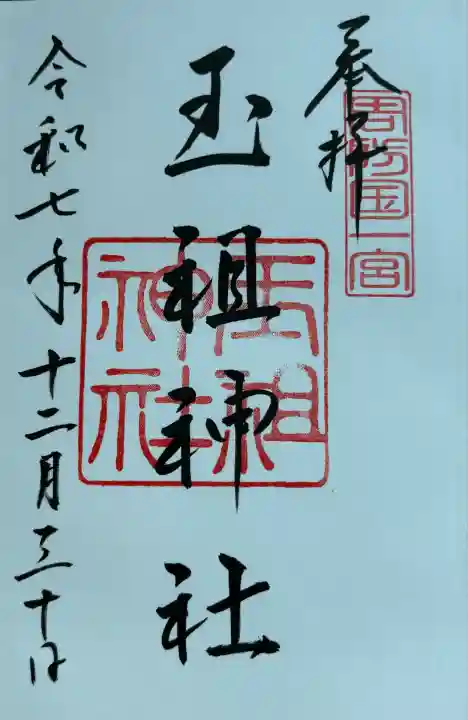 奉拝
周防国一宮
玉祖神社
玉祖
神社
令和七年十二月三十日